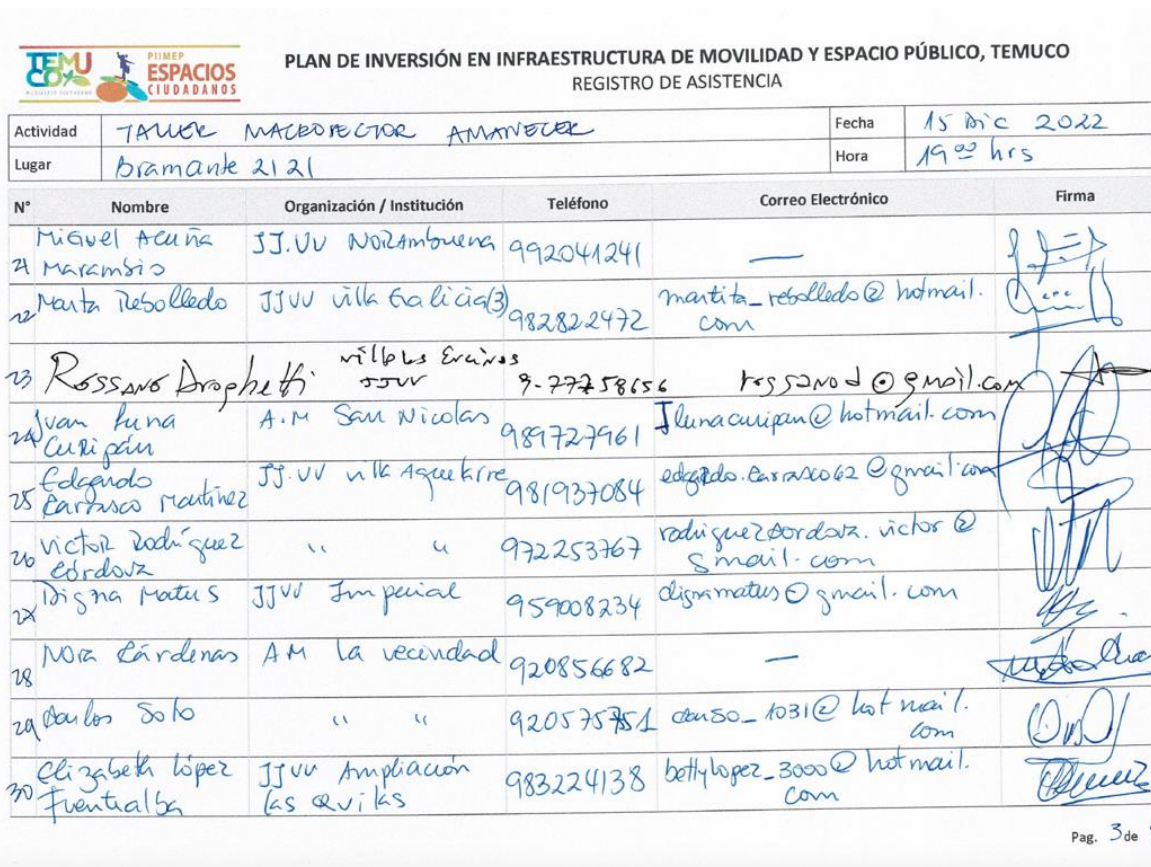 TEMUCO
PIIMEP
ESPACIOS
CIUDADANOS
PLAN DE INVERSIÓN EN INFRAESTRUCTURA DE MOVILIDAD Y ESPACIO PÚBLICO, TEMUCO
REGISTRO DE ASISTENCIA
Actividad TALLER MACROSECTOR AMANECER Fecha 15 Dic 2022
Lugar Bramante 2121 Hora 19 00 hrs
N° Nombre Organización / Institución Teléfono Correo Electrónico Firma
21 Miguel Acuña Marambio JJ.VV NORAmbuena 992041241 —
22 Marta Rebolledo JJVV Villa Galicia(3) 982822472 martita_rebolledo@hotmail.com
23 Rossano Droghetti Villa Los Encinos JJVV 9-77258656 rossanod@gmail.com
24 Juan Luna Curipán A.M San Nicolas 989727961 Jlunacuripan@hotmail.com
25 Edgardo Carrasco Martínez JJ.VV villa Aquelarre 981937084 edgardo.carrasco62@gmail.com
26 Victor Rodríguez Córdova " " 972253767 rodriguezcordova.victor@gmail.com
27 Digna Matus JJVV Imperial 959008234 dignamatus@gmail.com
28 Nora Cárdenas AM La vecindad 920856682 —
29 Carlos Soto " " 920575751 canso_1031@hotmail.com
30 Elizabeth López Fuentealba JJVV Ampliación las Quilas 983224138 bettylopez_3000@hotmail.com
Pag. 3 de